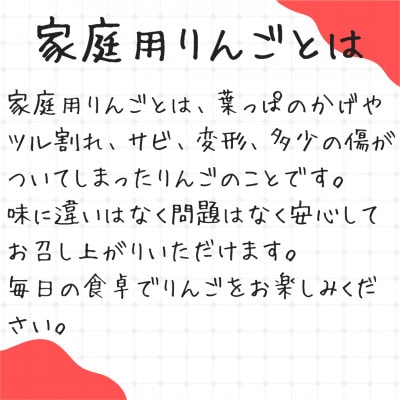 家庭用りんごとは
家庭用りんごとは、葉っぱのかげや
ツル割れ、サビ、変形、多少の傷が
ついてしまったりんごのことです。
味に違いはなく問題はなく安心して
お召し上がりいただけます。
毎日の食卓でりんごをお楽しみくだ
さい。